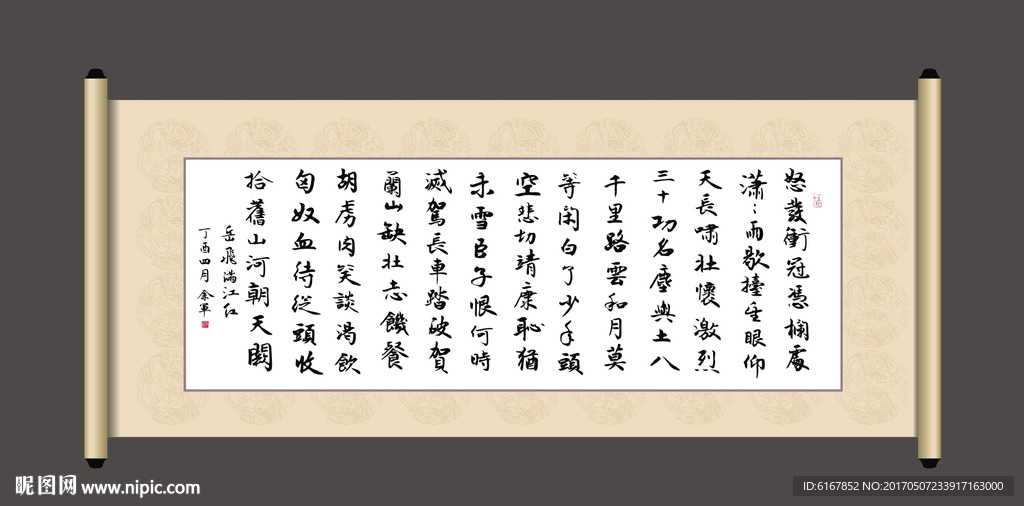 怒發衝冠憑欄處
瀟〻雨歇擡望眼仰
天長嘯壯懷激烈
三十功名塵與土八
千里路雲和月莫
等閑白了少年頭
空悲切靖康恥猶
未雪臣子恨何時
滅駕長車踏破賀
蘭山缺壯志饑餐
胡虜肉笑談渴飲
匈奴血待從頭收
拾舊山河朝天闕
岳飛滿江红
丁酉四月 余軍
昵图网 www.nipic.com
ID:6167852 NO:20170507233917163000